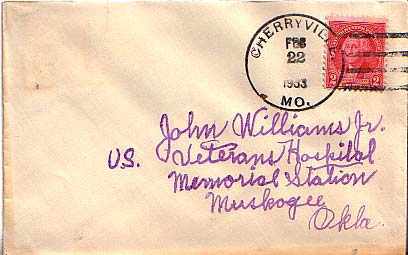 CHERRYVILLE
FEB
22
1933
MO.
2 2
John Williams Jr.
U.S. Veterans Hospital
Memorial Station
Muskogee
Okla.